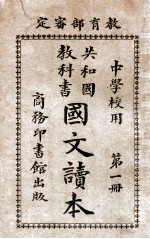 教育部審定
中學校用
共和國
教科書
國文讀本
第一册
商務印書館出版